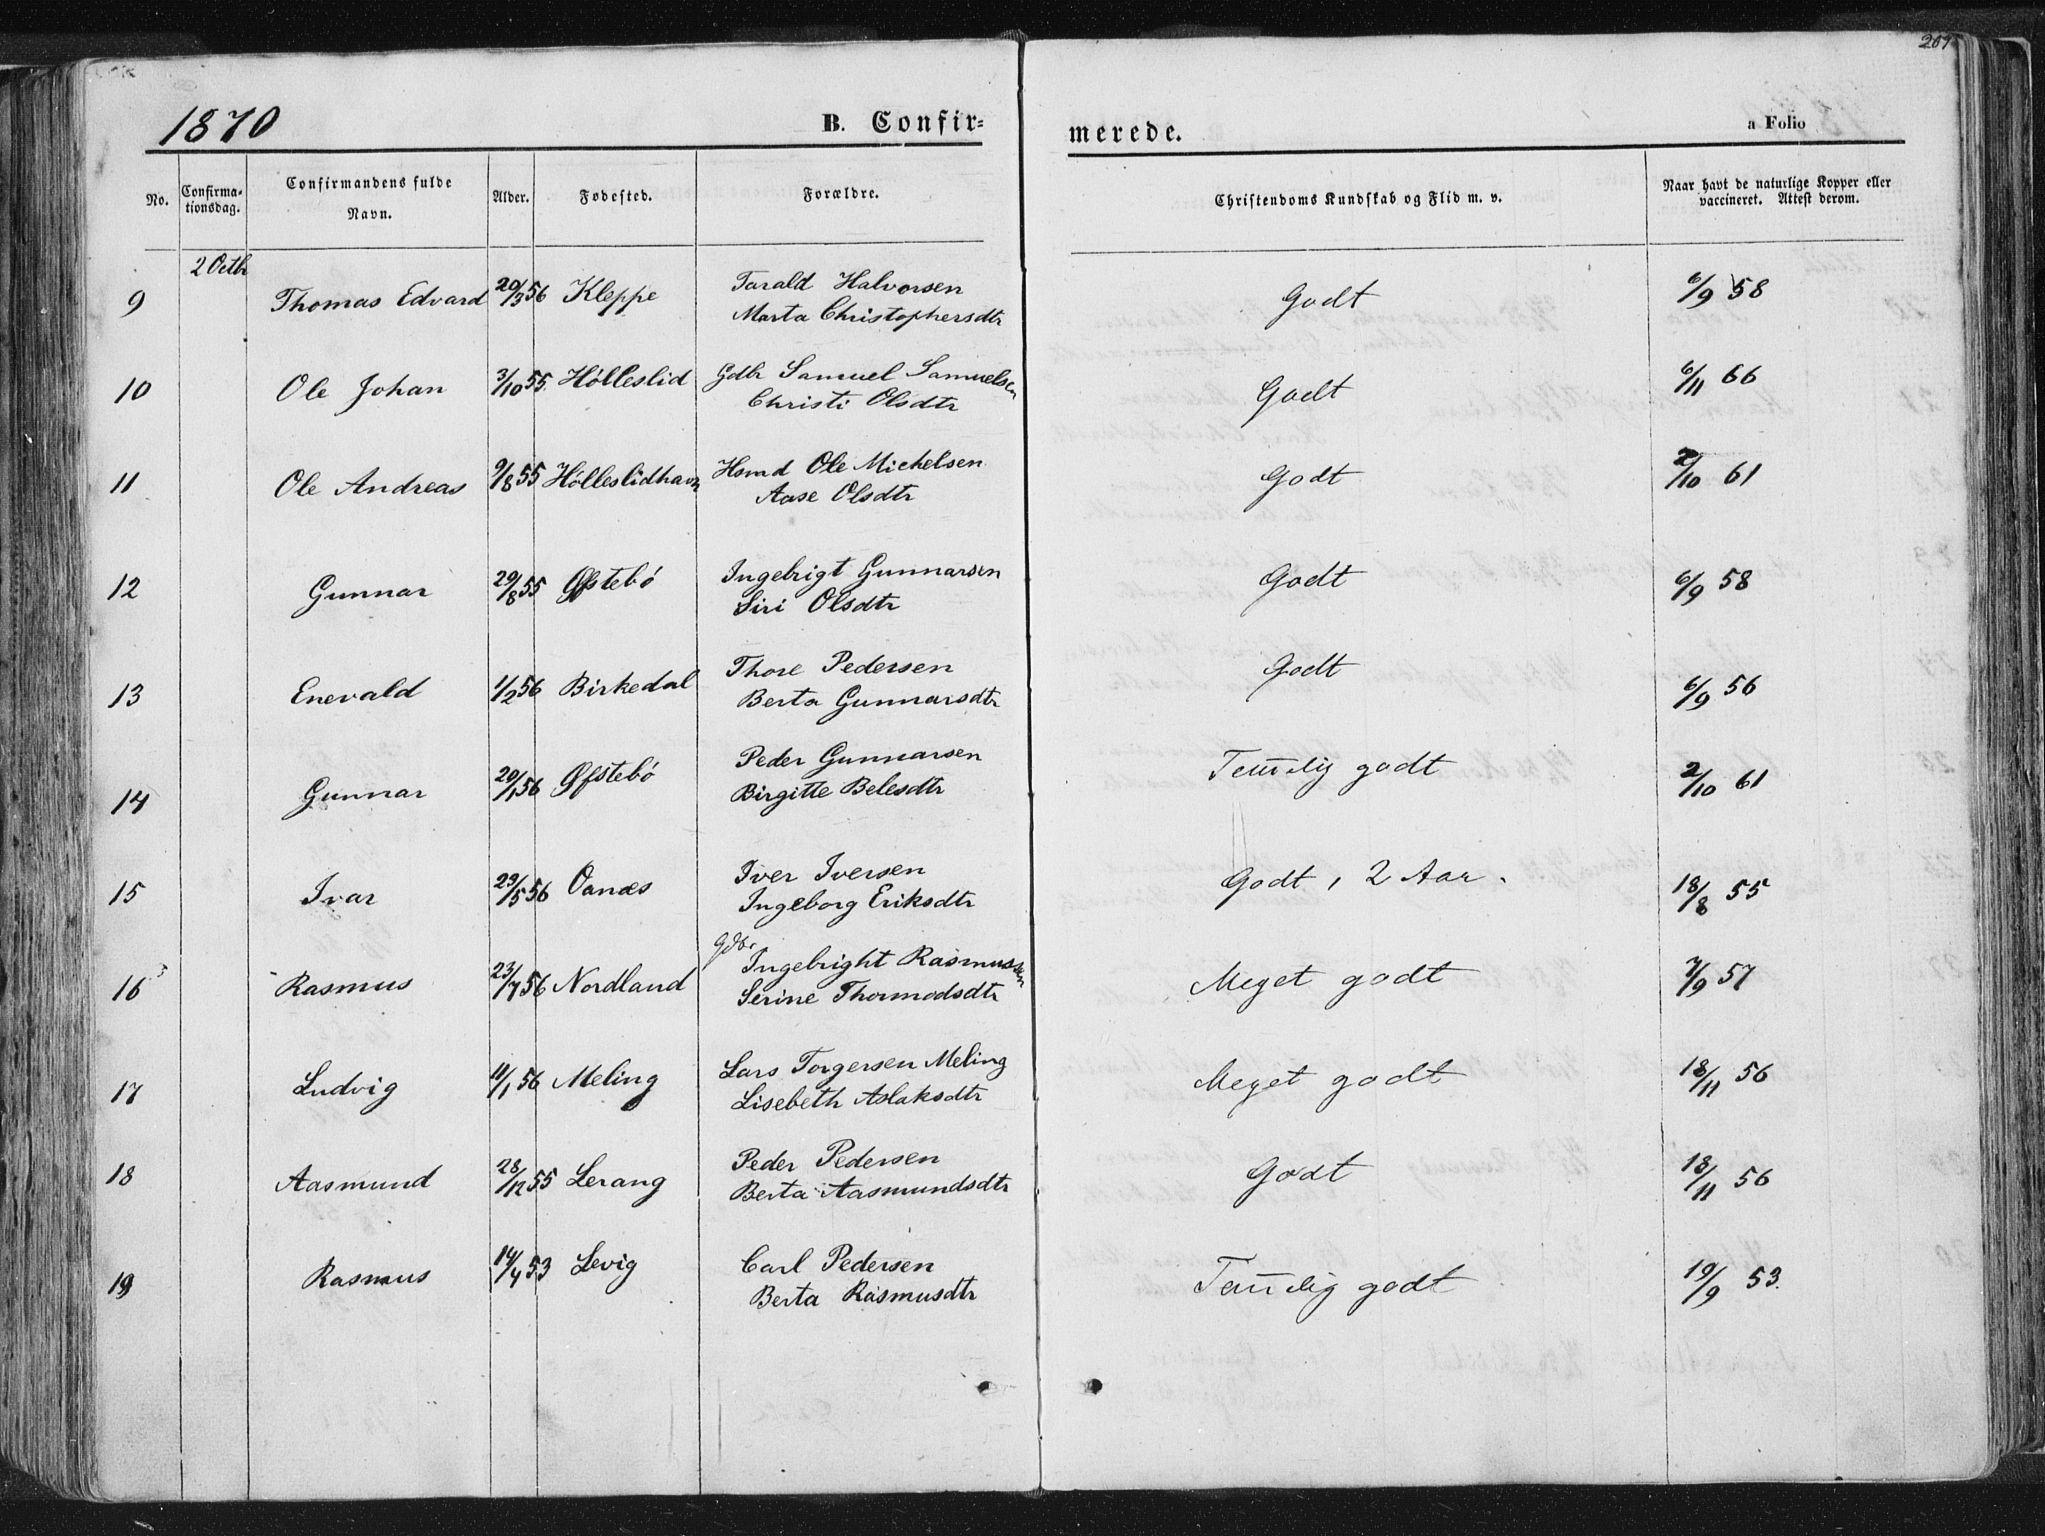 209
1870 B. Confir= merede. a Folio
No. Confirma-tionsdag. Confirmandens fulde Navn. Alder. Fødested. Forældre. Christendoms Kundskab og Flid m. v. Naar havt de naturlige Kopper eller vaccineret. Attest derom.
2 Octb
9 Thomas Edvard 20/3 56 Kleppe Tarald Halvorsen Godt 6/9 58
Marta Christophersdtr
10 Ole Johan 3/10 55 Hølleslid Gdbr Samuel Samuelsen Godt 6/11 66
Christi Olsdtr
11 Ole Andreas 9/8 55 Hølleslidhavn Hsmd Ole Michelsen Godt 2/10 61
Aase Olsdtr
12 Gunnar 29/8 55 Øfstebø Ingebrigt Gunnarsen Godt 6/9 58
Siri Olsdtr
13 Enevald 1/2 56 Birkedal Thore Pedersen Godt 6/9 56
Berta Gunnarsdtr
14 Gunnar 20/1 56 Øfstebø Peder Gunnarsen Tem̅elig godt 2/10 61
Birgitte Belesdtr
15 Ivar 29/5 56 Oanæs Iver Iversen Godt, 2 Aar. 18/8 55
Ingeborg Eriksdtr
16 Rasmus 23/7 56 Nordland Gdbr. Ingebright Rasmussen Meget godt 7/9 57
Serine Thormodsdtr
17 Ludvig 11/1 56 Meling Lars Torgersen Meling Meget godt 18/11 56
Lisebeth Aslaksdtr
18 Aasmund 28/12 55 Lerang Peder Pedersen Godt 18/11 56
Berta Aasmundsdtr
19 Rasmus 14/4 53 Levig Carl Pedersen Tem̅elig godt 19/9 53.
Berta Rasmusdtr